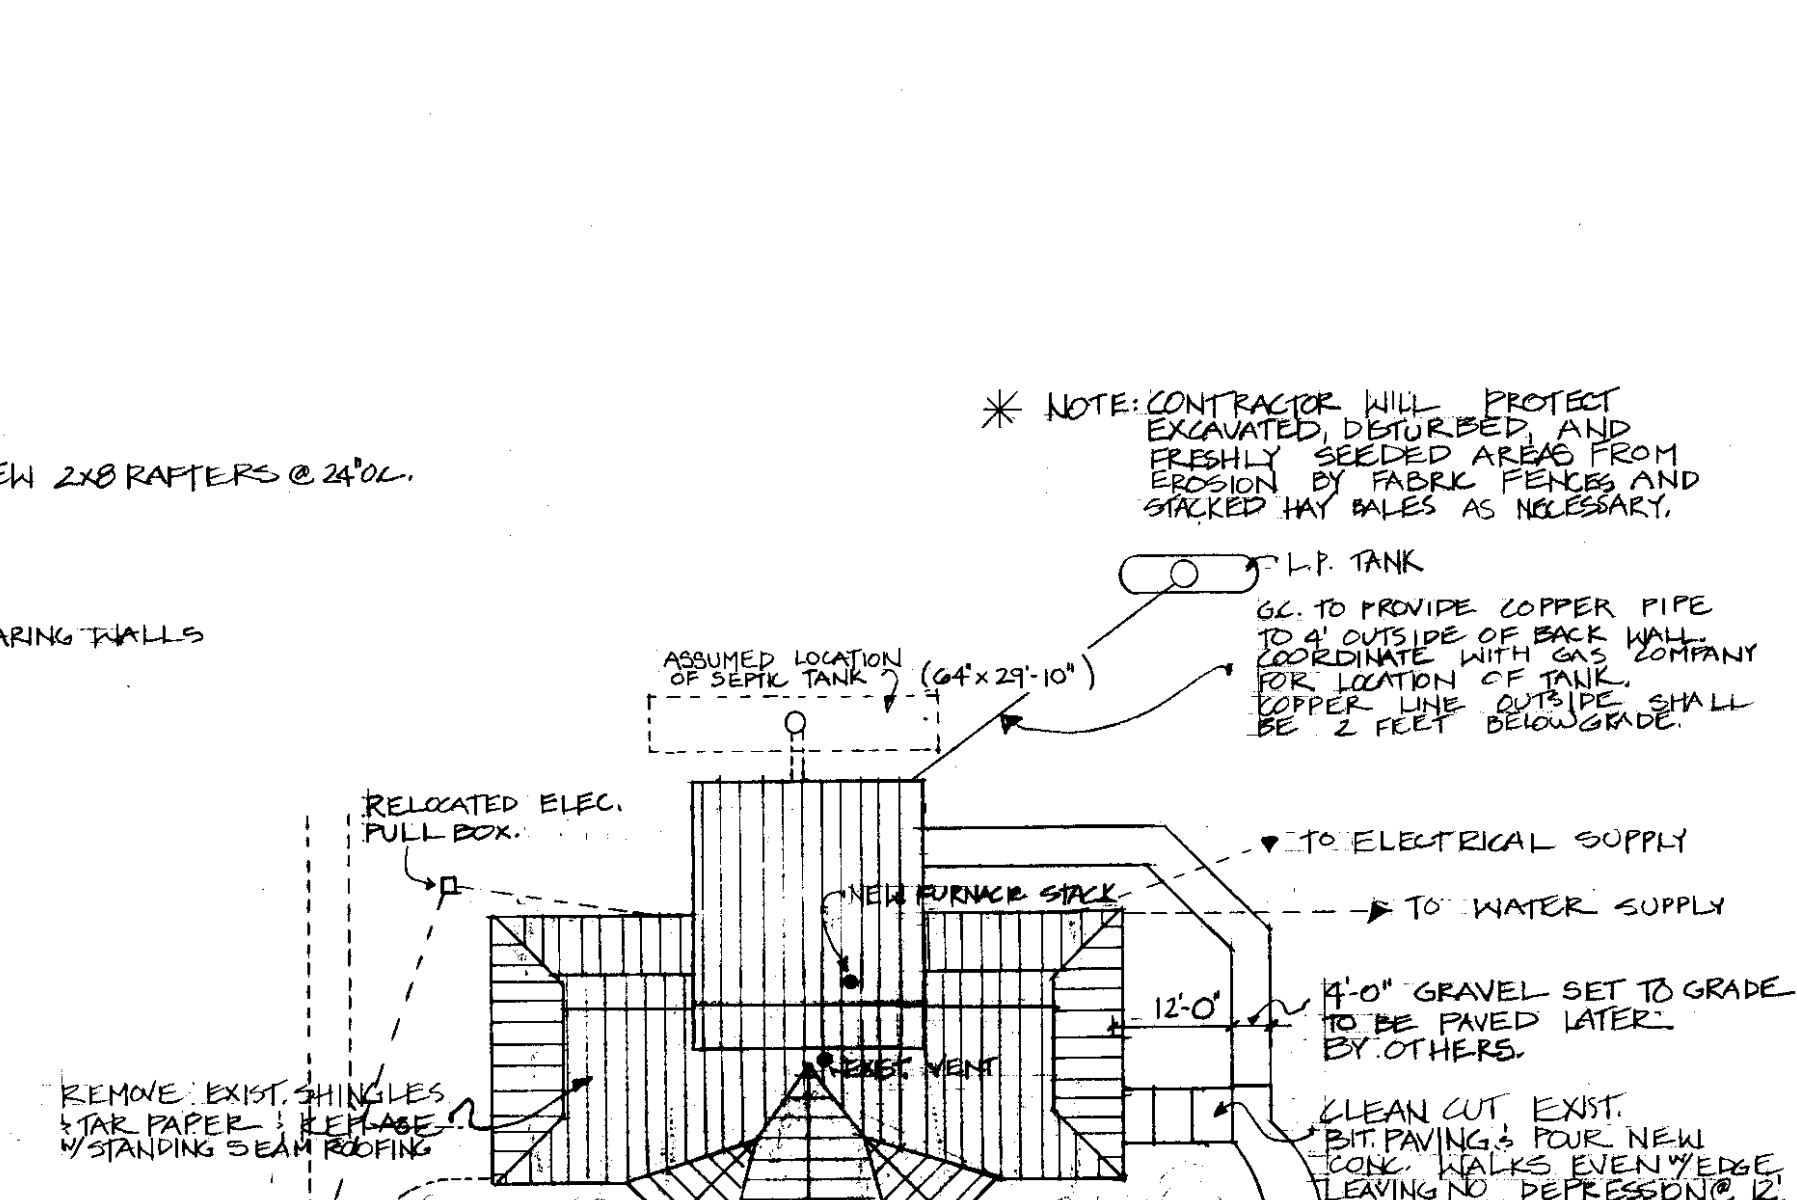 ✳ NOTE: CONTRACTOR WILL PROTECT
EXCAVATED, DETURBED, AND
FRESHLY SEEDED AREAS FROM
EROSION BY FABRIC FENCES AND
STACKED HAY BALES AS NECESSARY.
EW 2x8 RAFTERS @ 24" O.C.
L.P. TANK
G.C. TO PROVIDE COPPER PIPE
TO 4' OUTSIDE OF BACK WALL.
COORDINATE WITH GAS COMPANY
FOR LOCATION OF TANK.
COPPER LINE OUTSIDE SHALL
BE 2 FEET BELOW GRADE.
ARING WALLS
ASSUMED LOCATION
OF SEPTIC TANK
(64" x 29'-10")
RELOCATED ELEC.
PULL BOX.
TO ELECTRICAL SUPPLY
NEW FURNACE STACK
TO WATER SUPPLY
12'-0"
4'-0" GRAVEL SET TO GRADE
TO BE PAVED LATER
BY OTHERS.
EXIST. VENT
REMOVE EXIST. SHINGLES
& TAR PAPER & REPLASE
W/STANDING SEAM ROOFING
CLEAN CUT EXIST.
BIT. PAVING & POUR NEW
CONC. WALKS EVEN W/EDGE
LEAVING NO DEPRESSION @ 12'